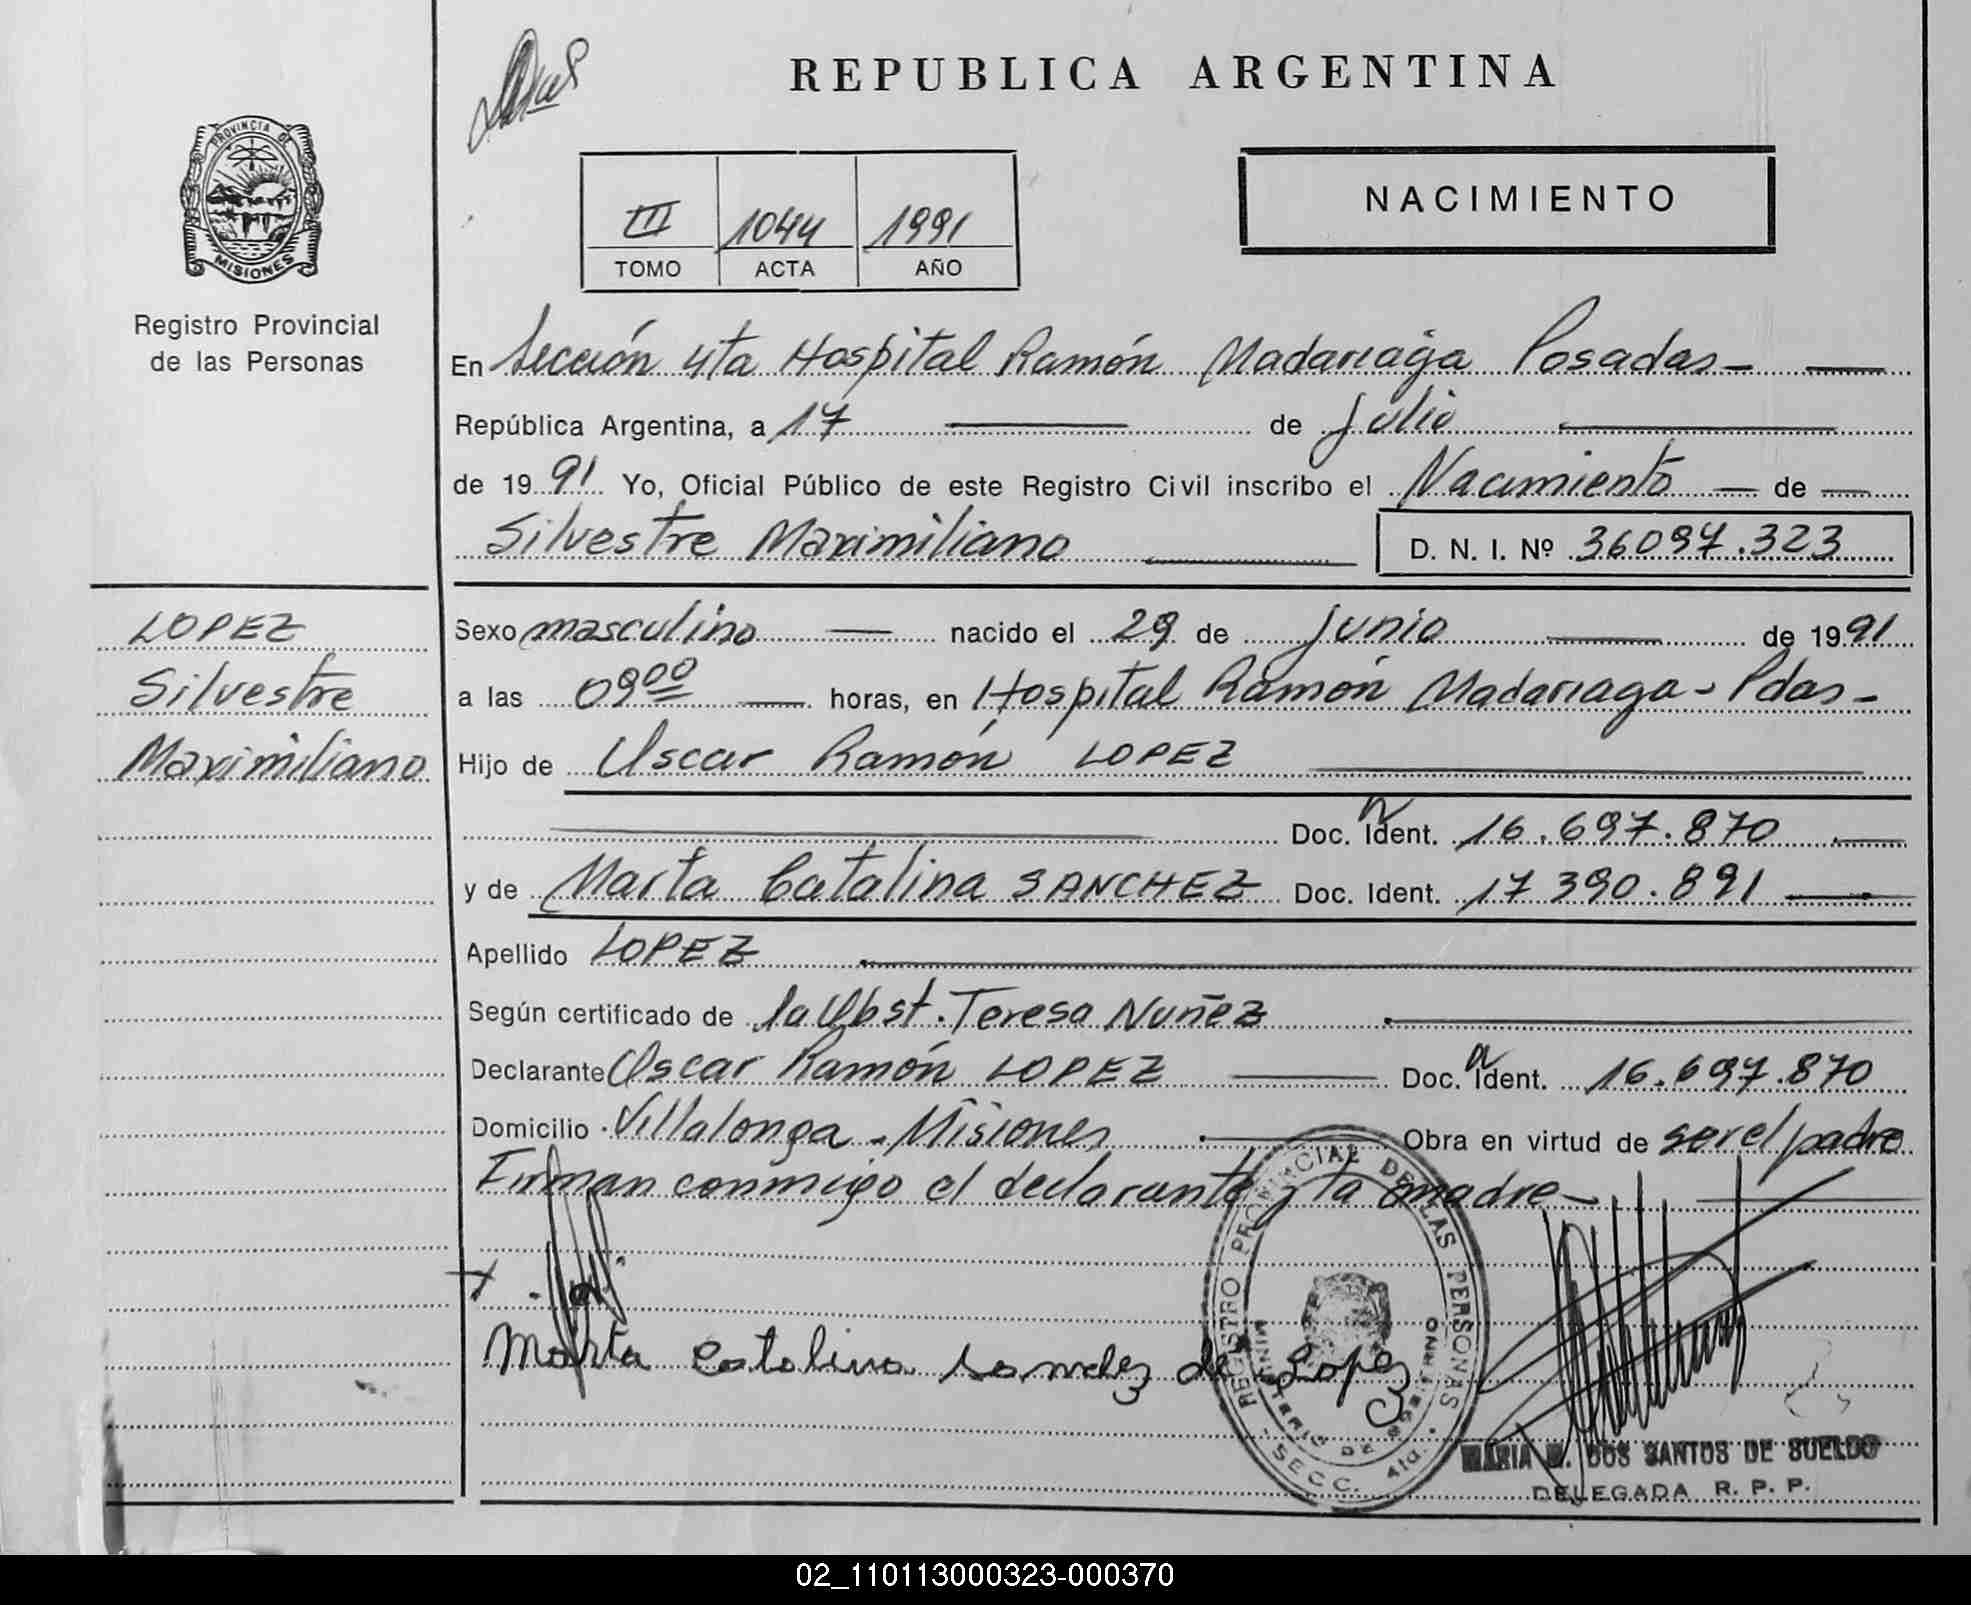 REPUBLICA ARGENTINA
PROVINCIA DE
MISIONES
Registro Provincial
de las Personas
III 1044 1991
TOMO ACTA AÑO
NACIMIENTO
En Sección 4ta Hospital Ramón Madariaga Posadas -
República Argentina, a 17 de Julio
de 1991 Yo, Oficial Público de este Registro Civil inscribo el Nacimiento de
Silvestre Maximiliano D. N. I. Nº 36097.323
LOPEZ
Silvestre
Maximiliano
Sexo masculino nacido el 29 de junio de 1991
a las 09 00 horas, en Hospital Ramón Madariaga - Pdas -
Hijo de Oscar Ramón LOPEZ
Doc. Ident. 16.697.870
y de Marta Catalina SANCHEZ Doc. Ident. 17 390.891
Apellido LOPEZ
Según certificado de la Obst. Teresa Nuñez
Declarante Oscar Ramón LOPEZ Doc. Ident. 16.697.870
Domicilio Villalonga - Misiones Obra en virtud de ser el padre
Firman conmigo el declarante y la madre -
Marta Catalina Sanchez de Lopez
REGISTRO PROVINCIAL DE LAS PERSONAS
MINISTERIO DE GOBIERNO
SECC. 4ta.
MARIA DOS SANTOS DE SUELDO
DELEGADA R. P. P.
02_110113000323-000370